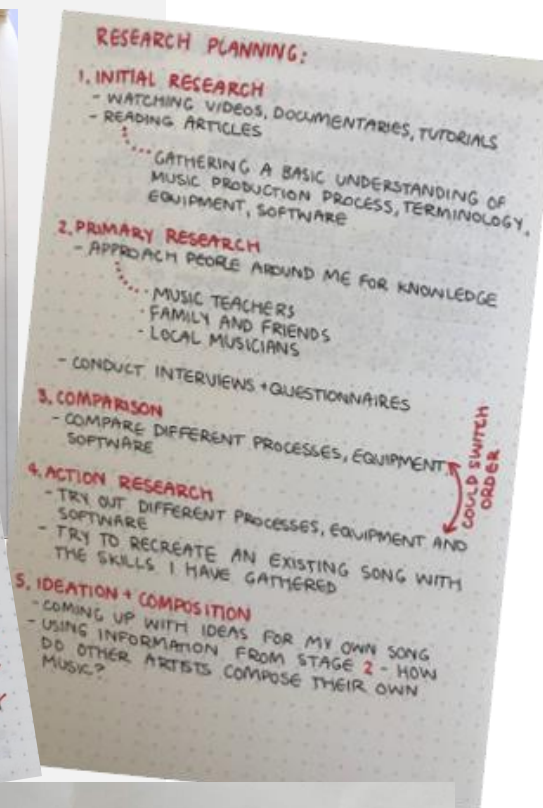 RESEARCH PLANNING:
1. INITIAL RESEARCH
- WATCHING VIDEOS, DOCUMENTARIES, TUTORIALS
- READING ARTICLES
GATHERING A BASIC UNDERSTANDING OF
MUSIC PRODUCTION PROCESS, TERMINOLOGY,
EQUIPMENT, SOFTWARE
2. PRIMARY RESEARCH
- APPROACH PEOPLE AROUND ME FOR KNOWLEDGE
- MUSIC TEACHERS
- FAMILY AND FRIENDS
- LOCAL MUSICIANS
- CONDUCT INTERVIEWS + QUESTIONNAIRES
3. COMPARISON
- COMPARE DIFFERENT PROCESSES, EQUIPMENT,
SOFTWARE
COULD SWITCH
ORDER
4. ACTION RESEARCH
- TRY OUT DIFFERENT PROCESSES, EQUIPMENT AND
SOFTWARE
- TRY TO RECREATE AN EXISTING SONG WITH
THE SKILLS I HAVE GATHERED
5. IDEATION + COMPOSITION
- COMING UP WITH IDEAS FOR MY OWN SONG
- USING INFORMATION FROM STAGE 2 - HOW
DO OTHER ARTISTS COMPOSE THEIR OWN
MUSIC?